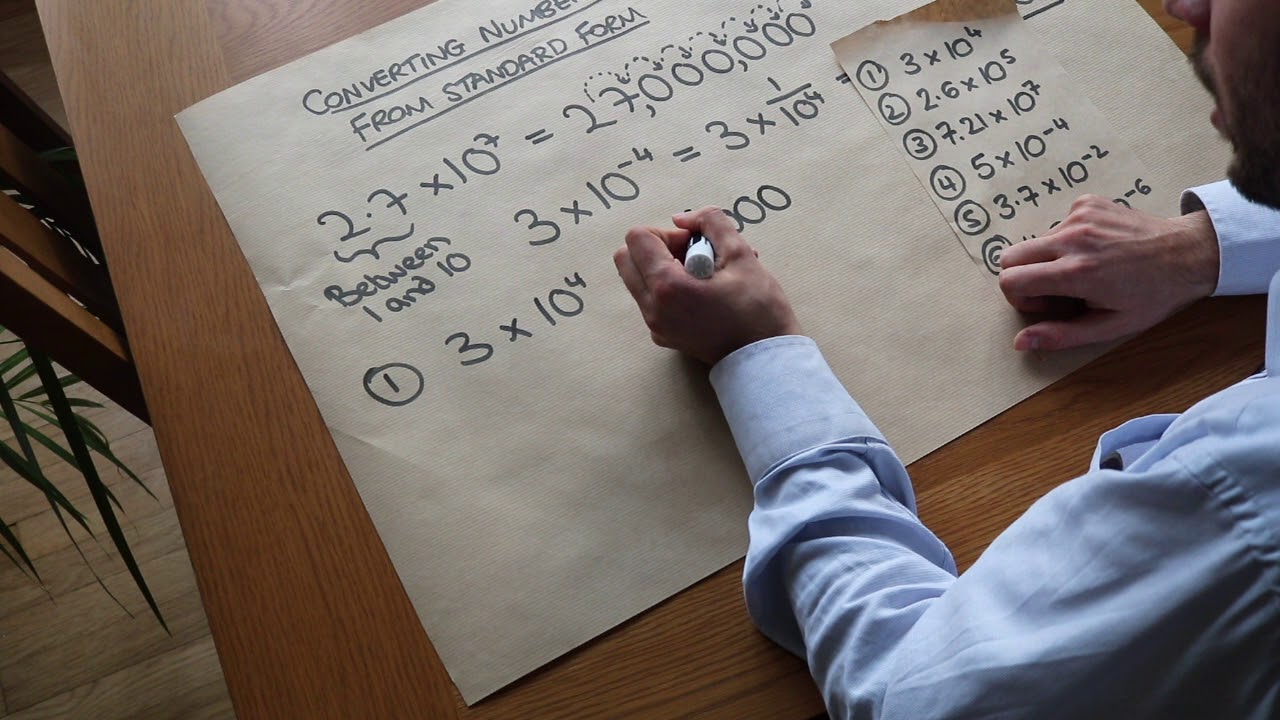 CONVERTING NUMBE
FROM STANDARD FORM
2.7 × 10⁷ = 27,000,000
Between
1 and 10
3 × 10⁻⁴ = 3 × 1/10⁴ =
① 3 × 10⁴
000
① 3 × 10⁴
② 2.6 × 10⁵
③ 7.21 × 10⁷
④ 5 × 10⁻⁴
⑤ 3.7 × 10⁻²
⑥ ⁻⁶